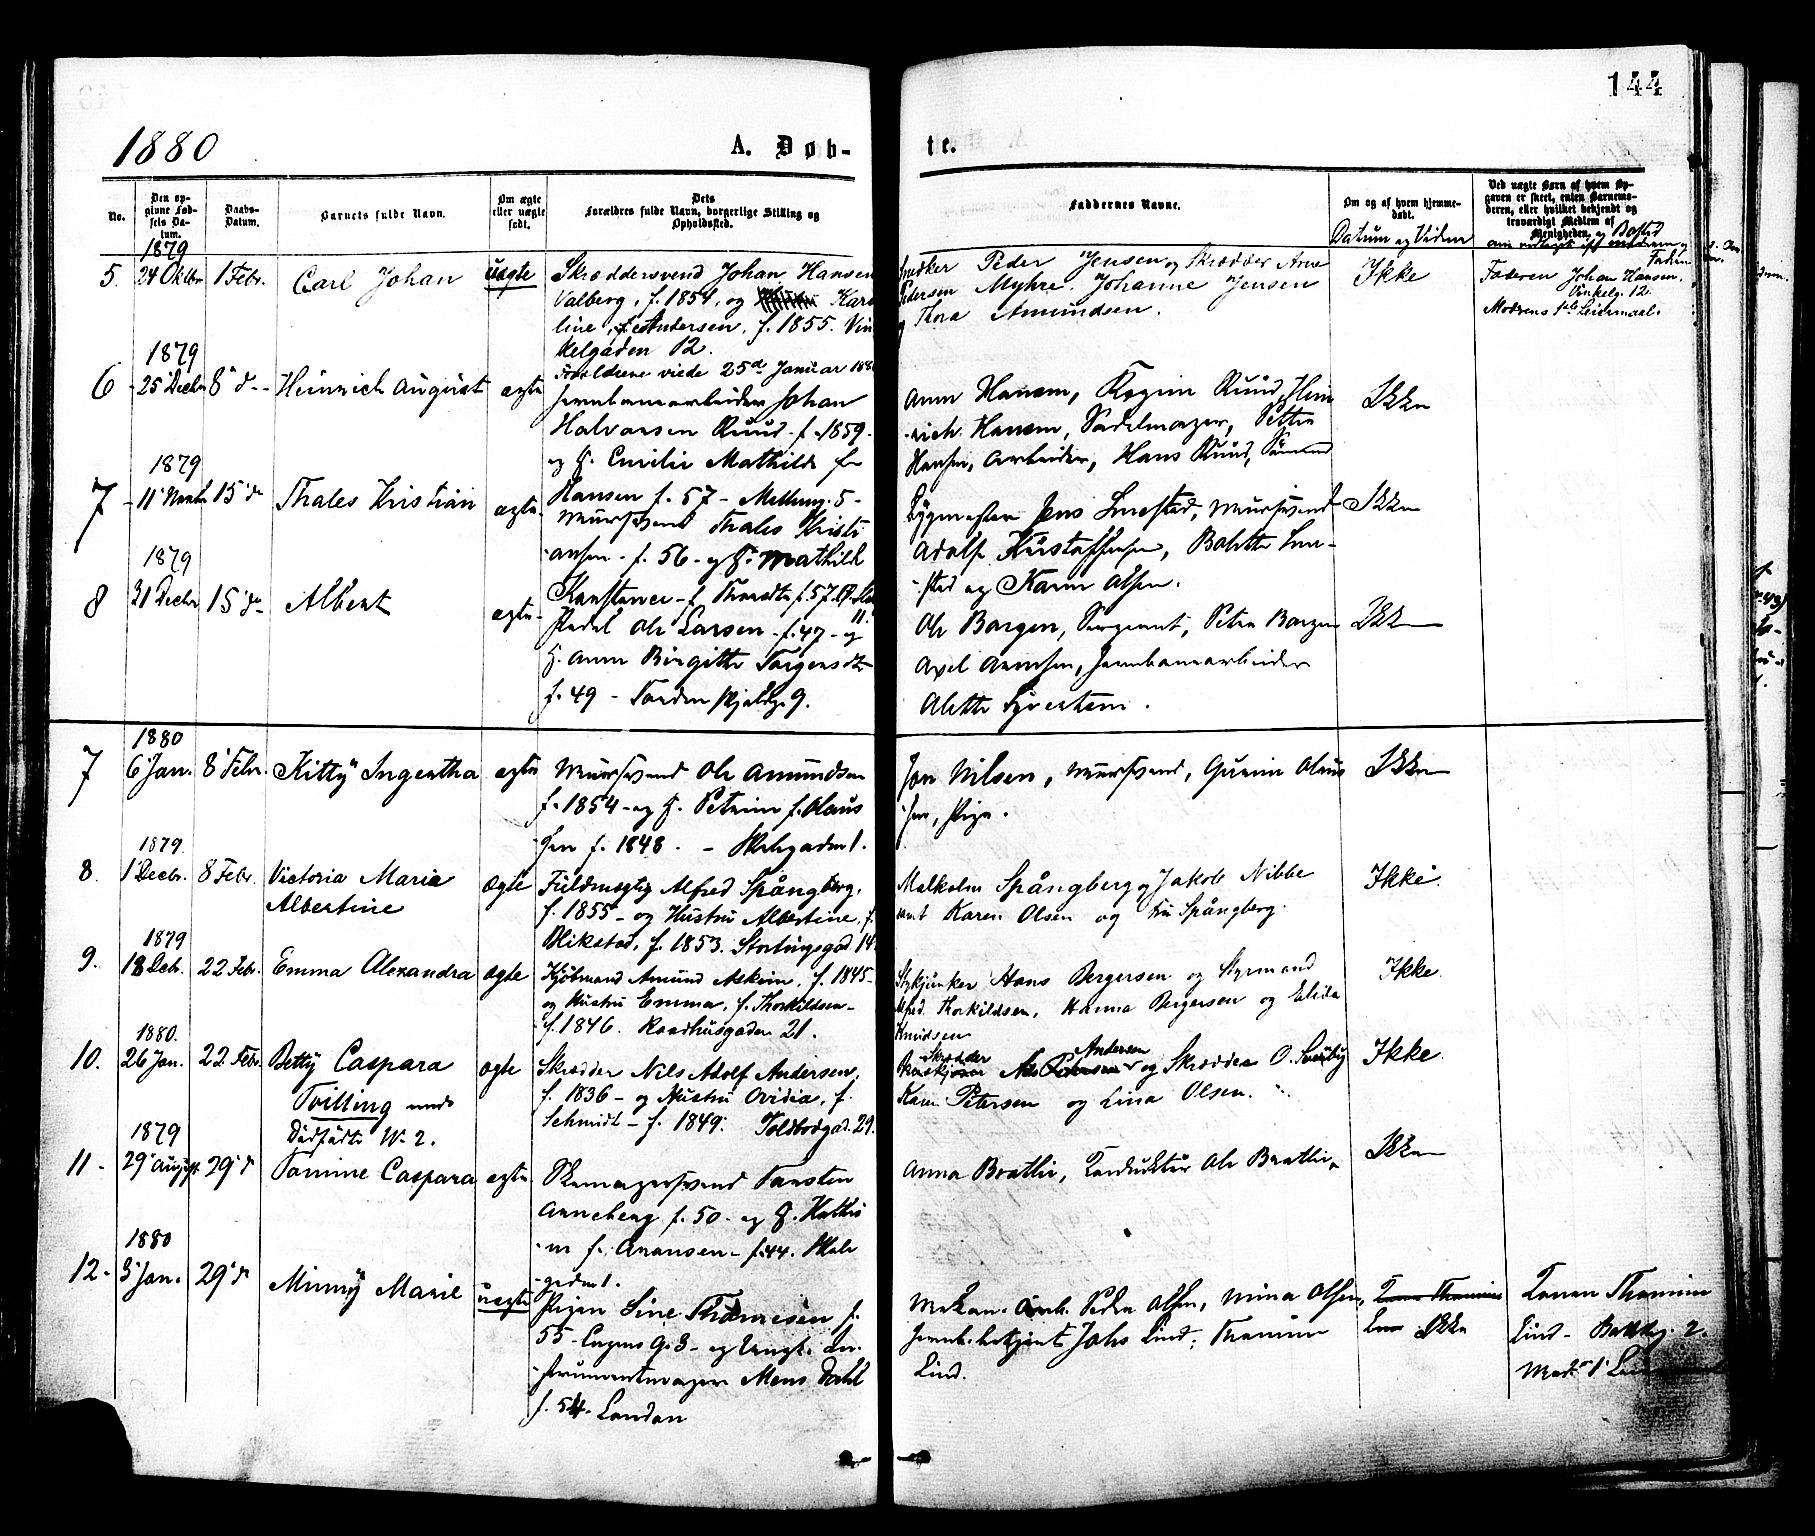 144
1880
A. Døb-
te.
No.
Den op-
givne Fød-
sels Da-
tum.
Daabs-
Datum.
Barnets fulde Navn.
Om ægte
eller uægte
født.
Dets
Forældres fulde Navn, borgerlige Stilling og
Opholdssted.
Faddernes Navne.
Om og af hvem hjemme-
døbt.
Datum og Viden
Ved uægte Børn af hvem Op-
gaven er skeet, enten Barnemo-
deren, eller hvilket bekjendt og
troværdigt Medlem af
Menigheden, og Bosted
1879
5. 24 Oktbr 1 Febr. Carl Johan uægte
Skræddersvend Johan Hansen
Valberg, f. 1854, og Karo
line, f. Andersen, f. 1855. Vin
kelgaden 12.
Forældrene viede 25de Januar
Snedker Peder Jensen og Skrædder Arne
Pedersen Myhre. Johanne Jensen
og Thora Amundsen.
Ikke
Faderen Johan Hansen.
Vinkelg. 12.
Modrens 1ste Leiermaal.
1879
6 25 Decbr 8 d Heinrich August ægte
Jernbanearbeider Johan
Halvorsen Ruud f. 1859
og H. Emilie Mathilde f.
Hansen f. 57 - Mellemg. 5 -
Anne Hansen, Regine Ruud, Hein
rich Hansen, Sadelmager, Petter
Hansen, Arbeider, Hans Ruud,
Ikke
1879
7 11 Novbr 15 d Thales Kristian ægte
Muursvend Thales Kristi
ansen - f. 56 - og H. Mathilde
Konstance f.
Bygmester Jens Smestad, Muursvend
Adolf Gustafsen, Bolette Sme-
stad og Karen Olsen.
Ikke
1879
8 31 Decbr 15 d Albert ægte
Ole Larsen - f. 47 - og
H. Anne Birgitte Torgersdtr
f. 49 - Tordenskjoldsg. 9.
Ole Borgen, Sergeant, Petra Borgen
Axel Arnesen, Jernbanearbeider
Alette Syvertsen.
Ikke
1880
7 6 Jan. 8 Febr. Kitty Ingertha ægte
Muursvend Ole Amundsen
f. 1854 - og H. Petrine f. Olaus
sen f. 1848. -
Jon Nilsen, Muursvend, Gunine Olaus
sen, Pige.
Ikke
1879
8. 1 Decbr. 8 Febr. Victoria Maria
Albertine
ægte
Fuldmægtig Alfred Spångberg,
f. 1855 - og Hustru Albertine, f.
Blikstad, f. 1853. Stortingsgad. 14
Malkolm Spångberg og Jakob Nibbe
samt Karen Olsen og Fru Spångberg.
Ikke.
1879
9. 18 Deb. 22 Febr. Emma Alexandra ægte
Kjøbmand Amund Askim, f. 1845 -
og Hustru Emma, f. Thorkildsen -
f. 1846. Raadhusgaden 21.
Hans Bergersen og Styrmand
Alfred Thorkildsen, Hanna Bergersen og Elida
Knudsen
Ikke
1880.
10. 26 Jan. 22 Febr. Betty Caspara
Tvilling med
Dødfødte No 2.
ægte
Skrædder Nils Adolf Andersen,
f. 1836 - og Hustru Ovidia, f.
Schmidt - f. 1849. Toldbodgad. 29.
Skrædder Andersen
og Skrædder O. Svarby
Karen Petersen og Lina Olsen.
Ikke.
1879
11 - 29 August 29 d Tomine Caspara ægte
Skomagersvend Torsten
Anneberg f. 50 - og H. Kathri
ne f. Aronsen - f. 44.
Anna Brathe, Konduktør Ole Brathe,
Ikke
1880
12 - 3 Jan. 29 d Minny Marie uægte
Pigen Line Thomesen f.
55 - Engens G. 3 - og Ungk. In-
strumentmager Mons Dahl
f. 54 - London
Mekan. Arb. Peder Olsen, Mina Olsen,
Jernb. betjent Johs Lind, Thomine
Lind.
Ikke
Konen Thomine
Lind - Bakkeg. 2.